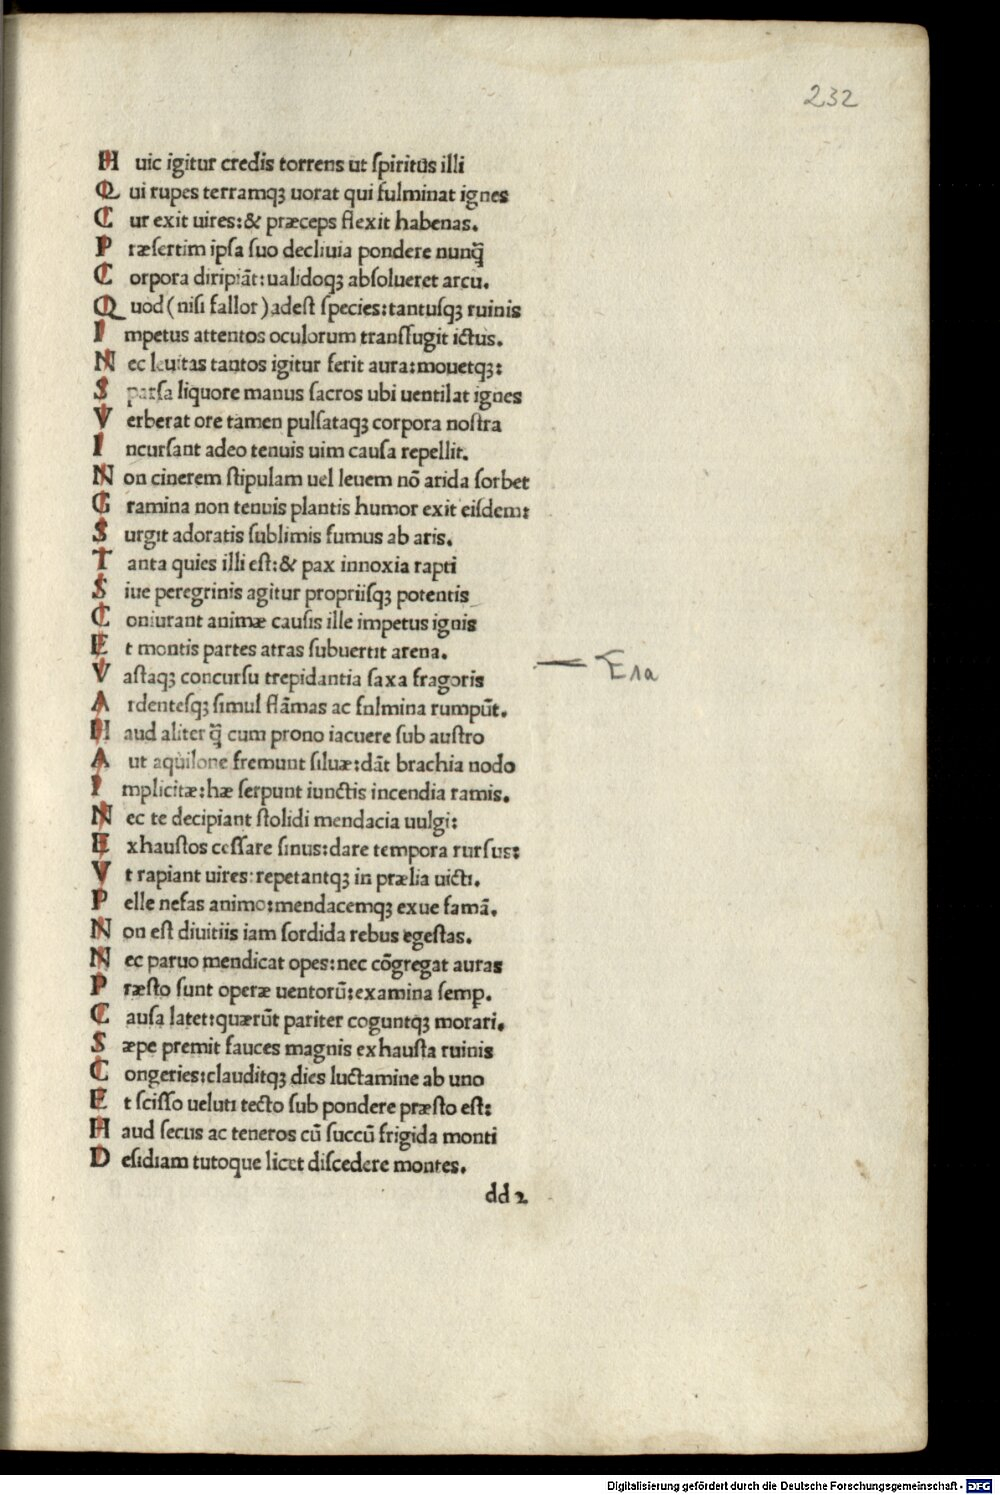 232
Huic igitur credis torrens ut ſpiritus illi
Qui rupes terramqꝫ uorat qui fulminat ignes
Cur exit uires:& præceps flexit habenas.
Præſertim ipſa ſuo decliuia pondere nunq̃
Corpora diripiãt:ualidoqꝫ abſolueret arcu.
Quod(niſi fallor)adeſt ſpecies:tantuſqꝫ ruinis
Impetus attentos oculorum tranſſugit ictus.
Nec leuitas tantos igitur ferit aura:mouetqꝫ:
Sparſa liquore manus ſacros ubi uentilat ignes
Verberat ore tamen pulſataqꝫ corpora noſtra
Incurſant adeo tenuis uim cauſa repellit.
Non cinerem ſtipulam uel leuem nõ arida ſorbet
Gramina non tenuis plantis humor exit eiſdem:
Surgit adoratis ſublimis fumus ab aris.
Tanta quies illi eſt:& pax innoxia rapti
Siue peregrinis agitur propriiſqꝫ potentis
Coniurant animæ cauſis ille impetus ignis
Et montis partes atras ſubuertit arena.
Vaſtaqꝫ concurſu trepidantia ſaxa fragoris
Ardenteſqꝫ ſimul flãmas ac fulmina rumpũt.
Haud aliter q̃ cum prono iacuere ſub auſtro
Aut aquilone fremunt ſiluæ:dãt brachia nodo
Implicitæ:hæ ſerpunt iunctis incendia ramis.
Nec te decipiant ſtolidi mendacia uulgi:
Exhauſtos ceſſare ſinus:dare tempora rurſus:
Vt rapiant uires:repetantqꝫ in prælia uicti.
Pelle nefas animo:mendacemqꝫ exue famã.
Non eſt diuitiis iam ſordida rebus egeſtas.
Nec paruo mendicat opes:nec cõgregat auras
Præſto ſunt operæ uentorũ:examina ſemp.
Cauſa latet:quærũt pariter coguntqꝫ morari.
Sæpe premit fauces magnis exhauſta ruinis
Congeries:clauditqꝫ dies luctamine ab uno
Et ſciſſo ueluti tecto ſub pondere præſto eſt:
Haud ſecus ac teneros cũ ſuccũ frigida monti
Deſidiam tutoque licet diſcedere montes.
dd 2
Digitalisierung gefördert durch die Deutsche Forschungsgemeinschaft - DFG